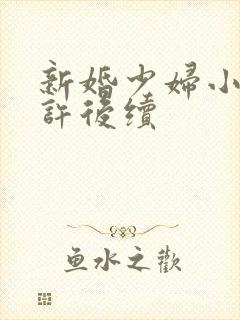 新婚少婦小
許後續
鱼水之歡